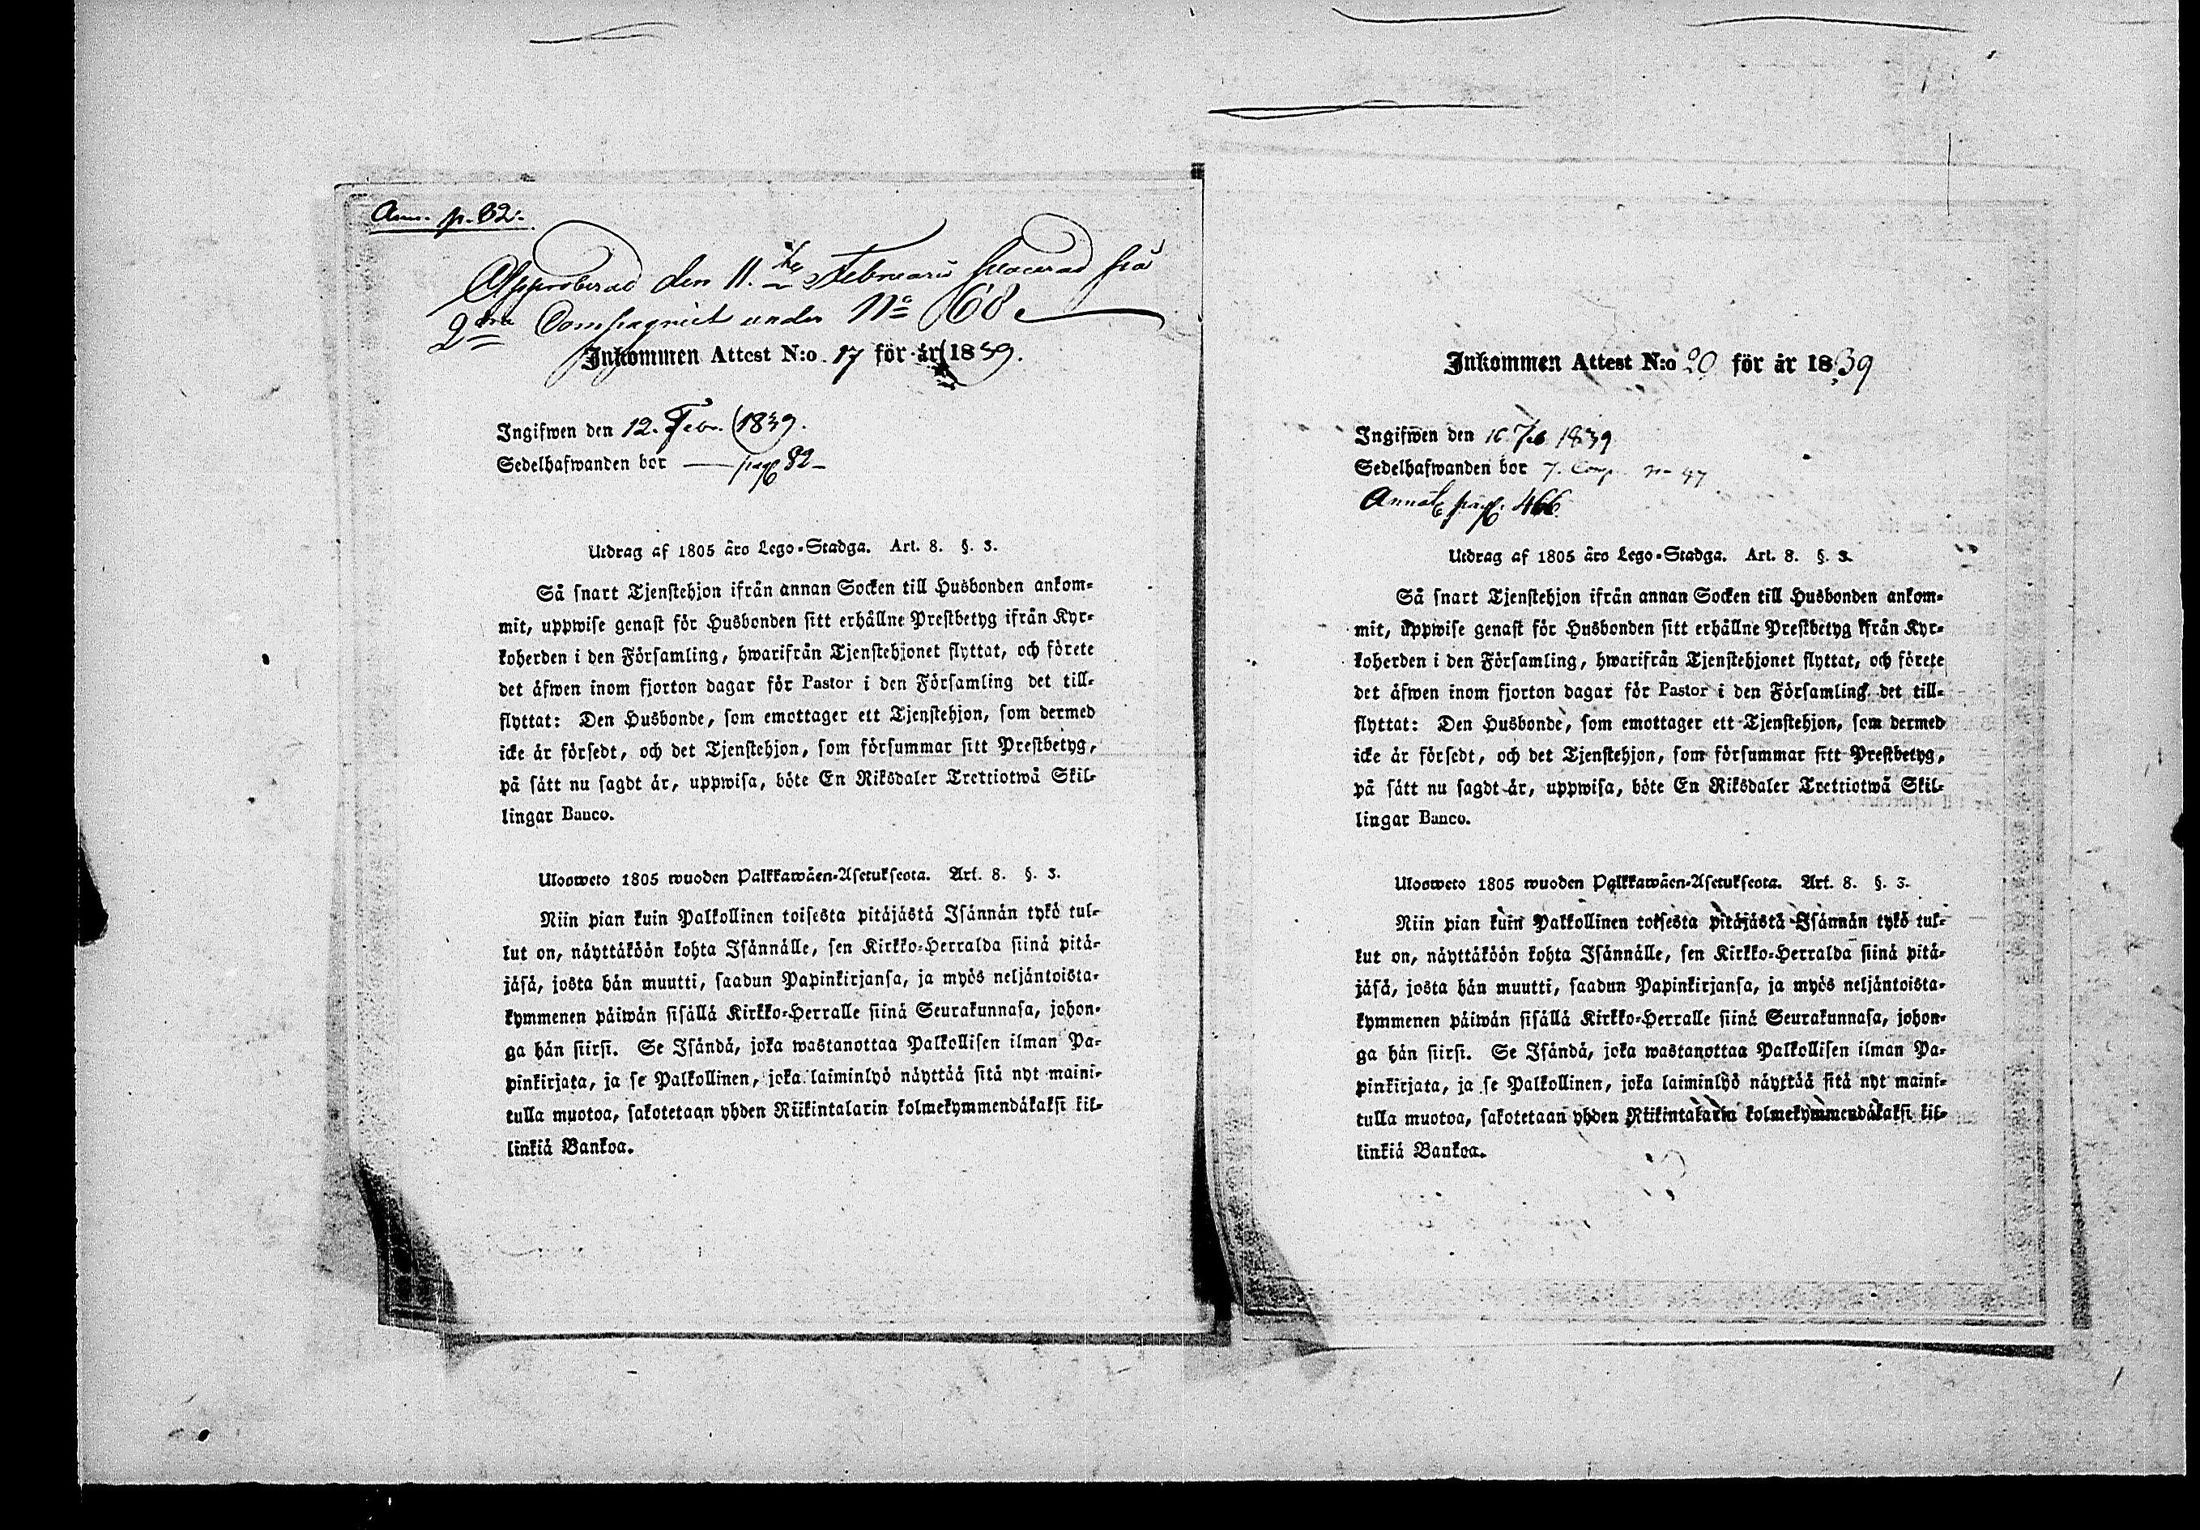 Ann. p. 82.
Approberad den 11.te Februarii placerad på
2dra Compagniet under No 68.
Inkommen Attest N:o 17 för år 1839.
Ingifwen den 12. Febr. 1839.
Sedelhafwanden bor — pag 82
Utdrag af 1805 års Lego-Stadga. Art. 8. §. 3.
Så snart Tjenstehjon ifrån annan Socken till Husbonden ankom-
mit, uppwise genast för Husbonden sitt erhållne Prestbetyg ifrån Kyr-
koherden i den Församling, hwarifrån Tjenstehjonet flyttat, och förete
det äfwen inom fjorton dagar för Pastor i den Församling det till-
flyttat: Den Husbonde, som emottager ett Tjenstehjon, som dermed
icke är försedt, och det Tjenstehjon, som försummar sitt Prestbetyg,
på sätt nu sagdt är, uppwisa, böte En Riksdaler Trettiotwå Skil-
lingar Banco.
Ulosweto 1805 wuoden Palkkawäen-Asetuksesta. Art. 8. §. 3.
Niin pian kuin Palkollinen toisesta pitäjästä Isännän tykö tul-
lut on, näyttäköön kohta Isännälle, sen Kirkko-Herralda siinä pitä-
jäsä, josta hän muutti, saadun Papinkirjansa, ja myös neljäntoista-
kymmenen päiwän sisällä Kirkko-Herralle siinä Seurakunnasa, johon-
ga hän siirsi. Se Isändä, joka wastanottaa Palkollisen ilman Pa-
pinkirjata, ja se Palkollinen, joka laiminlyö näyttää sitä nyt maini-
tulla muotoa, sakotetaan yhden Riikintalarin kolmekymmendäkaksi kil-
linkiä Bankoa.
Inkommen Attest N:o 20 för år 1839
Ingifwen den 16 Feb 1839
Sedelhafwanden bor 7. Comp. No 47
Annot pag. 466.
Utdrag af 1805 års Lego-Stadga. Art. 8. §. 3.
Så snart Tjenstehjon ifrån annan Socken till Husbonden ankom-
mit, uppwise genast för Husbonden sitt erhållne Prestbetyg ifrån Kyr-
koherden i den Församling, hwarifrån Tjenstehjonet flyttat, och förete
det äfwen inom fjorton dagar för Pastor i den Församling det till-
flyttat: Den Husbonde, som emottager ett Tjenstehjon, som dermed
icke är försedt, och det Tjenstehjon, som försummar sitt Prestbetyg,
på sätt nu sagdt är, uppwisa, böte En Riksdaler Trettiotwå Skil-
lingar Banco.
Ulosweto 1805 wuoden Palkkawäen-Asetuksesta. Art. 8. §. 3.
Niin pian kuin Palkollinen toisesta pitäjästä Isännän tykö tul-
lut on, näyttäköön kohta Isännälle, sen Kirkko-Herralda siinä pitä-
jäsä, josta hän muutti, saadun Papinkirjansa, ja myös neljäntoista-
kymmenen päiwän sisällä Kirkko-Herralle siinä Seurakunnasa, johon-
ga hän siirsi. Se Isändä, joka wastanottaa Palkollisen ilman Pa-
pinkirjata, ja se Palkollinen, joka laiminlyö näyttää sitä nyt maini-
tulla muotoa, sakotetaan yhden Riikintalarin kolmekymmendäkaksi kil-
linkiä Bankoa.